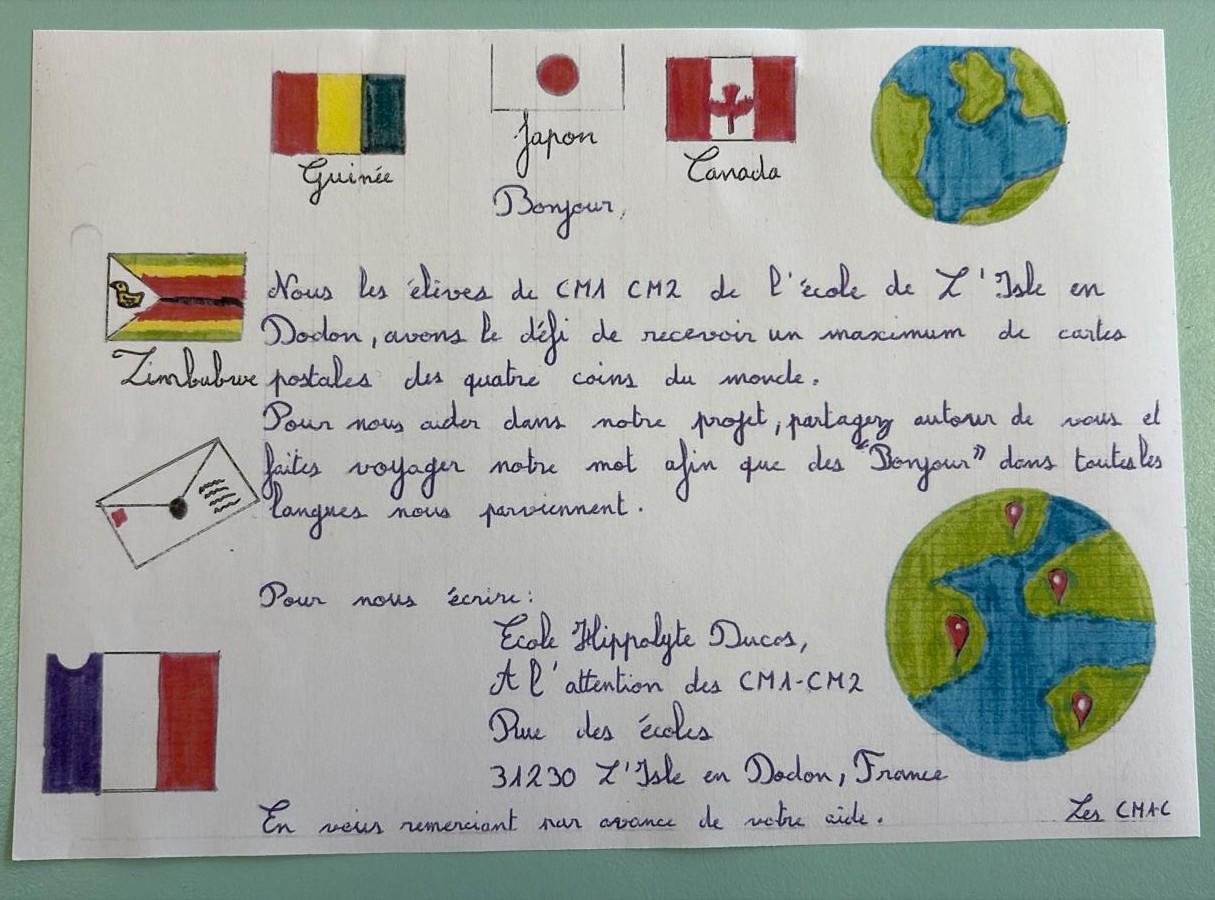 Guinée
Japon
Canada
Bonjour,
Zimbubwe
Nous les élèves de CM1 CM2 de l'école de L'Isle en
Dodon, avons le défi de recevoir un maximum de cartes
postales des quatre coins du monde.
Pour nous aider dans notre projet, partagez autour de vous et
faites voyager notre mot afin que des "Bonjour" dans toutes les
langues nous parviennent.
Pour nous écrire:
Ecole Hippolyte Ducos,
A l'attention des CM1-CM2
Rue des écoles
31230 L'Isle en Dodon, France
En vous remerciant par avance de votre aide.
Les CM1-C